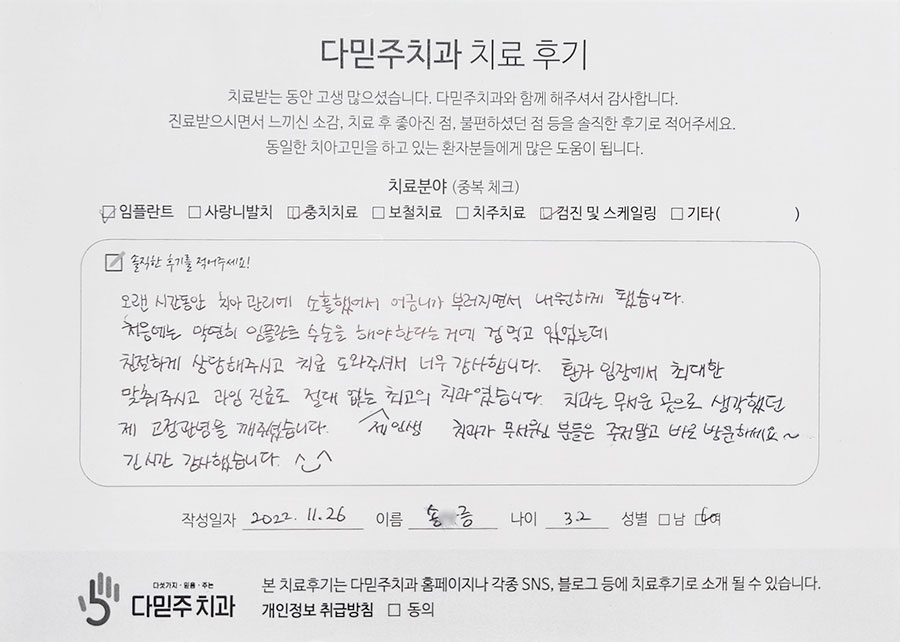 다믿주치과 치료 후기
치료받는 동안 고생 많으셨습니다. 다믿주치과와 함께 해주셔서 감사합니다.
진료받으시면서 느끼신 소감, 치료 후 좋아진 점, 불편하셨던 점 등을 솔직한 후기로 적어주세요.
동일한 치아고민을 하고 있는 환자분들에게 많은 도움이 됩니다.
치료분야 (중복 체크)
☑ 임플란트 □ 사랑니발치 ☑ 충치치료 □ 보철치료 □ 치주치료 ☑ 검진 및 스케일링 □ 기타( )
솔직한 후기를 적어주세요!
오랜 시간동안 치아 관리에 소홀했어서 어금니가 부러지면서 내원하게 됐습니다.
처음에는 막연히 임플란트 수술을 해야한다는 거에 겁먹고 있었는데
친절하게 상담해주시고 치료 도와주셔서 너무 감사합니다. 환자 입장에서 최대한
맞춰주시고 과잉 진료도 절대 없는 최고의 치과였습니다. 치과는 무서운 곳으로 생각했던
제 고정관념을 깨주셨습니다. 제 인생 치과가 무서우신 분들은 주저말고 바로 방문하세요~
긴 시간 감사했습니다. ^_^
작성일자 2022. 11. 26 이름 송 증 나이 32 성별 □남 ☑여
다섯가지·믿음·주는
다믿주치과
본 치료후기는 다믿주치과 홈페이지나 각종 SNS, 블로그 등에 치료후기로 소개 될 수 있습니다.
개인정보 취급방침 □ 동의